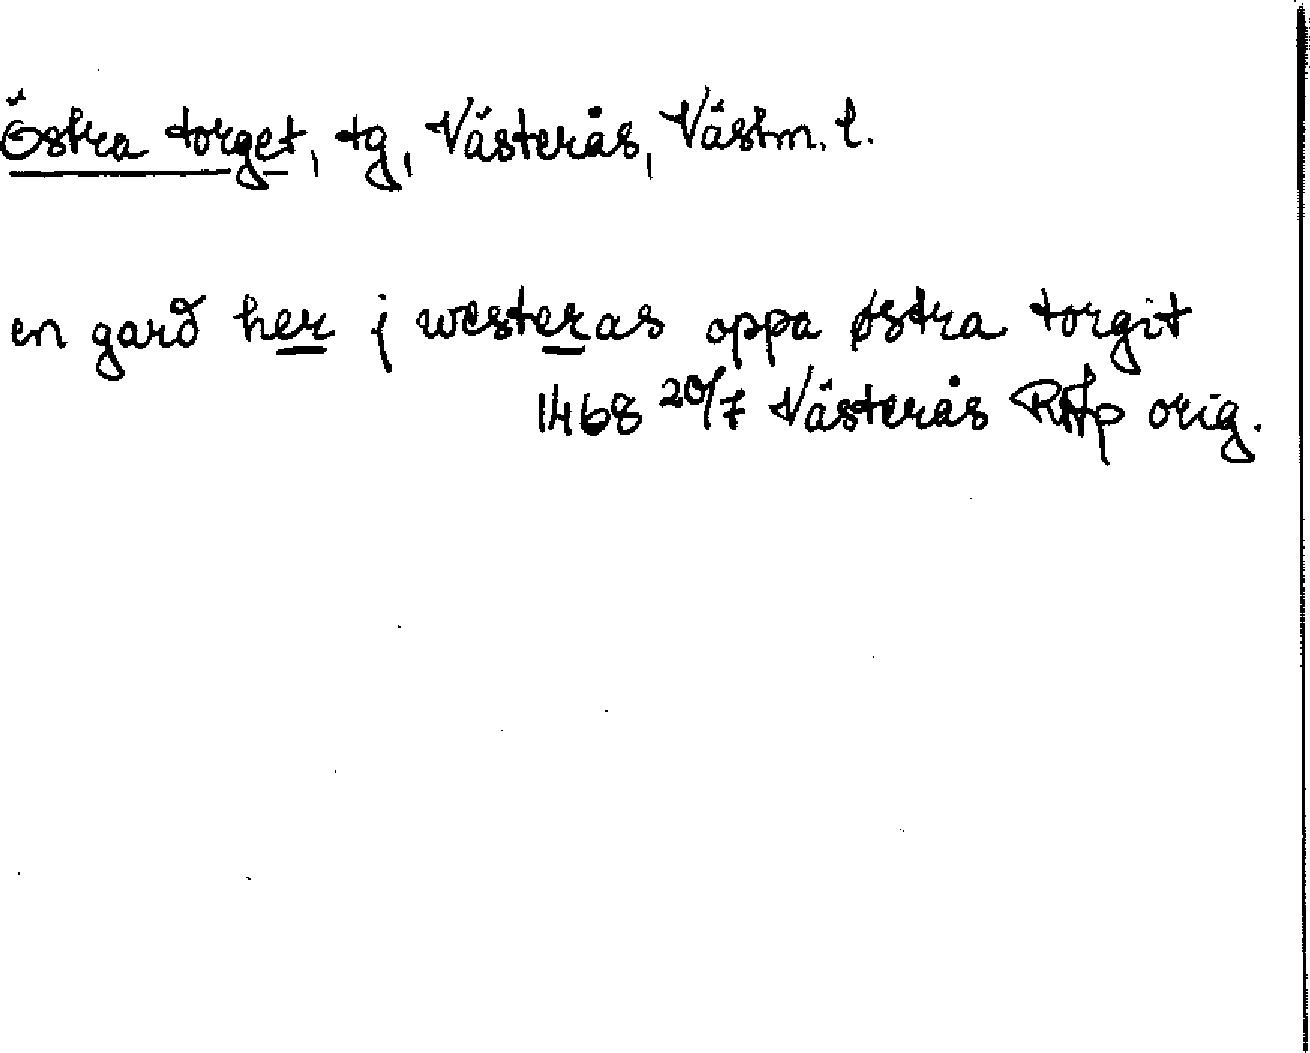 Östra torget, tg, Västerås, Västm. l.
en gard her j westeras oppa østra torgit
1468 20/7 Västerås RAp orig.